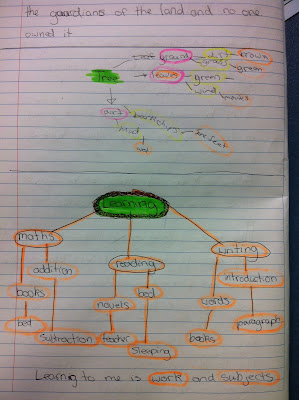 the guardians of the land and no one
owned it
ground
dirt
brown
grass
green
Tree
leaves
green
wind
art
mud
Learning
maths
reading
writing
addition
introduction
books
novels
bed
words
bed
subtraction
teacher
books
paragraph
sleeping
Learning to me is work and subjects